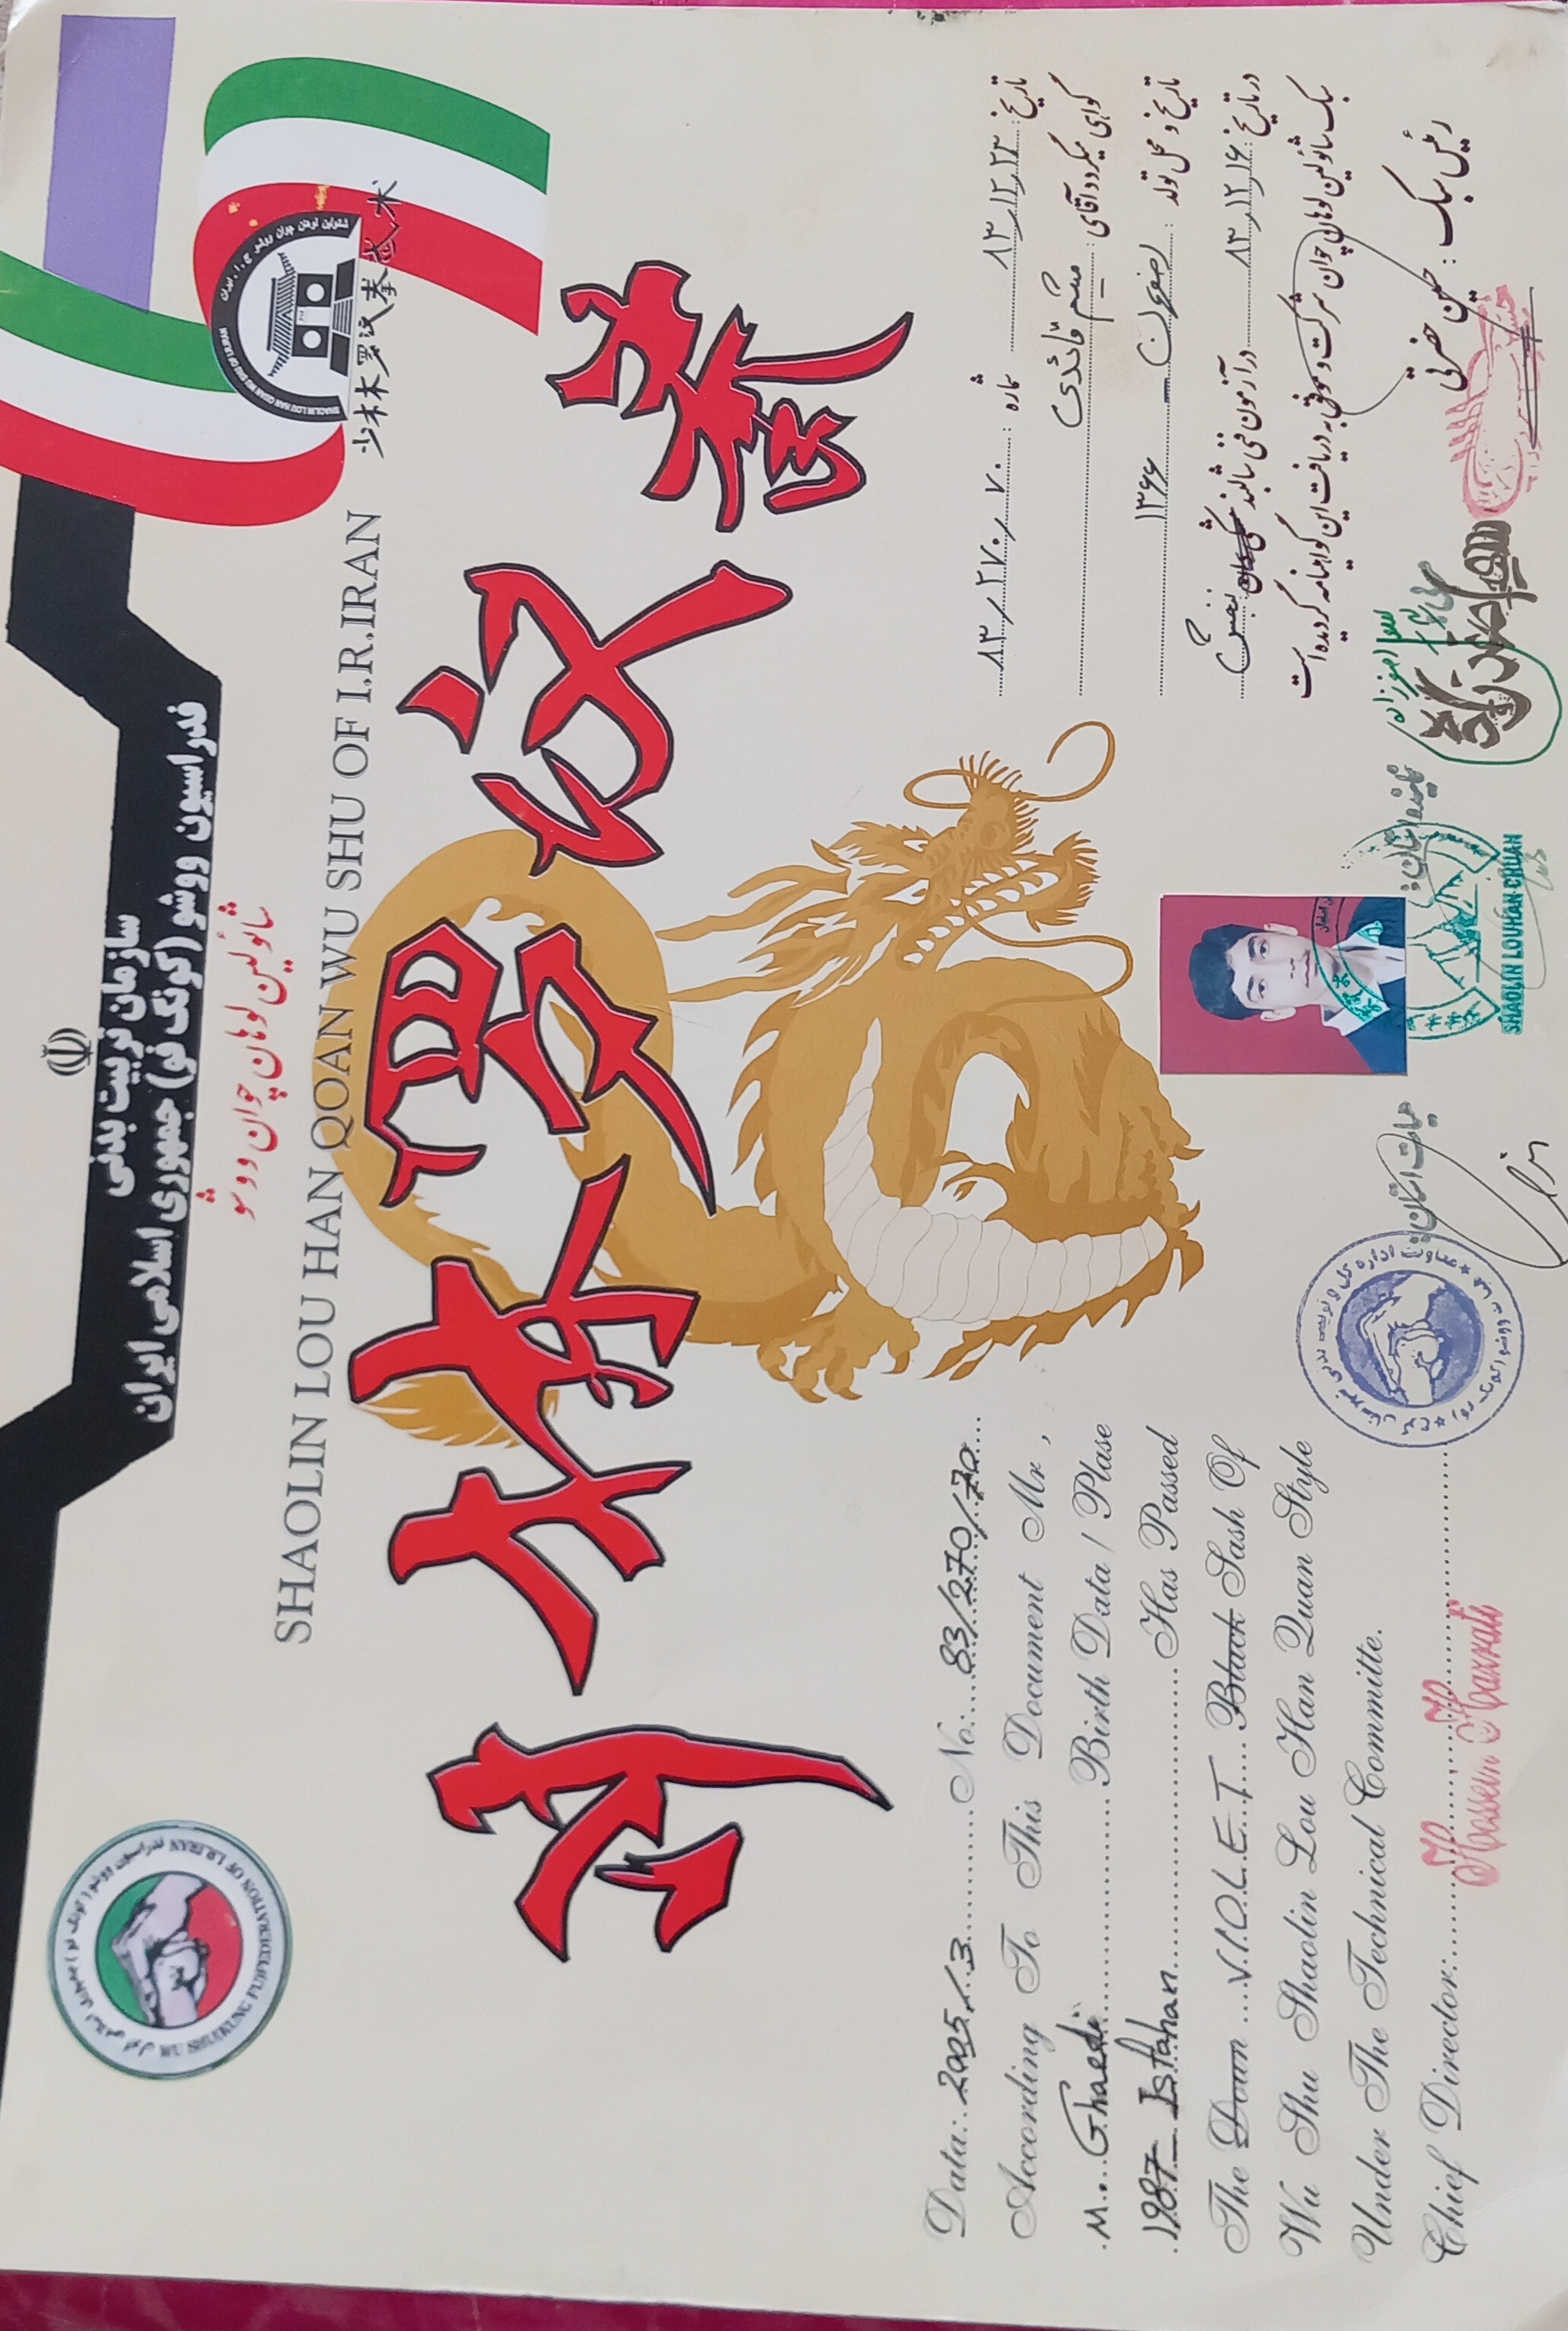 سازمان تربیت بدنی
فدراسیون ووشو (کونگ فو) جمهوری اسلامی ایران
شائولین لوهان چوان ووشو
SHAOLIN LOU HAN QOAN WU SHU OF I.R.IRAN
WU SHU(KUNG FU)FEDERATION OF I.R.IRAN
SHAOLIN LOU HAN QUAN WU SHU OF I.R.IRAN
少林罗汉拳武术
少林罗汉拳
Data:. 2005/.3 No:.. 83/270/70
According To This Document Mr ,
M.. Ghaedi Birth Data / Plase
1987 _ Isfahan Has Passed
The Doan V.I.O.L.E.T. Black Sash Of
Wu Shu Shaolin Lou Han Quan Style
Under The Technical Committe.
Chief Director:
Hossein Hazrati
تاریخ: ۸۳/۱۲/۲۳ شماره: ۸۳/۲۷۰/۷۰
گواهی میگردد آقای: میثم قائدی
تاریخ و محل تولد: اصفهان _ ۱۳۶۶
در تاریخ: ۸۳/۱۲/۱۶ در آزمون فنی شالبند مشکی دان بنفش
سبک شائولین لوهان چوان شرکت و موفق به دریافت این گواهینامه گردیده است
رئیس سبک: حسین حضرتی
نماینده استان:
هیات استان:
SHAOLIN LOUHAN CHUAN